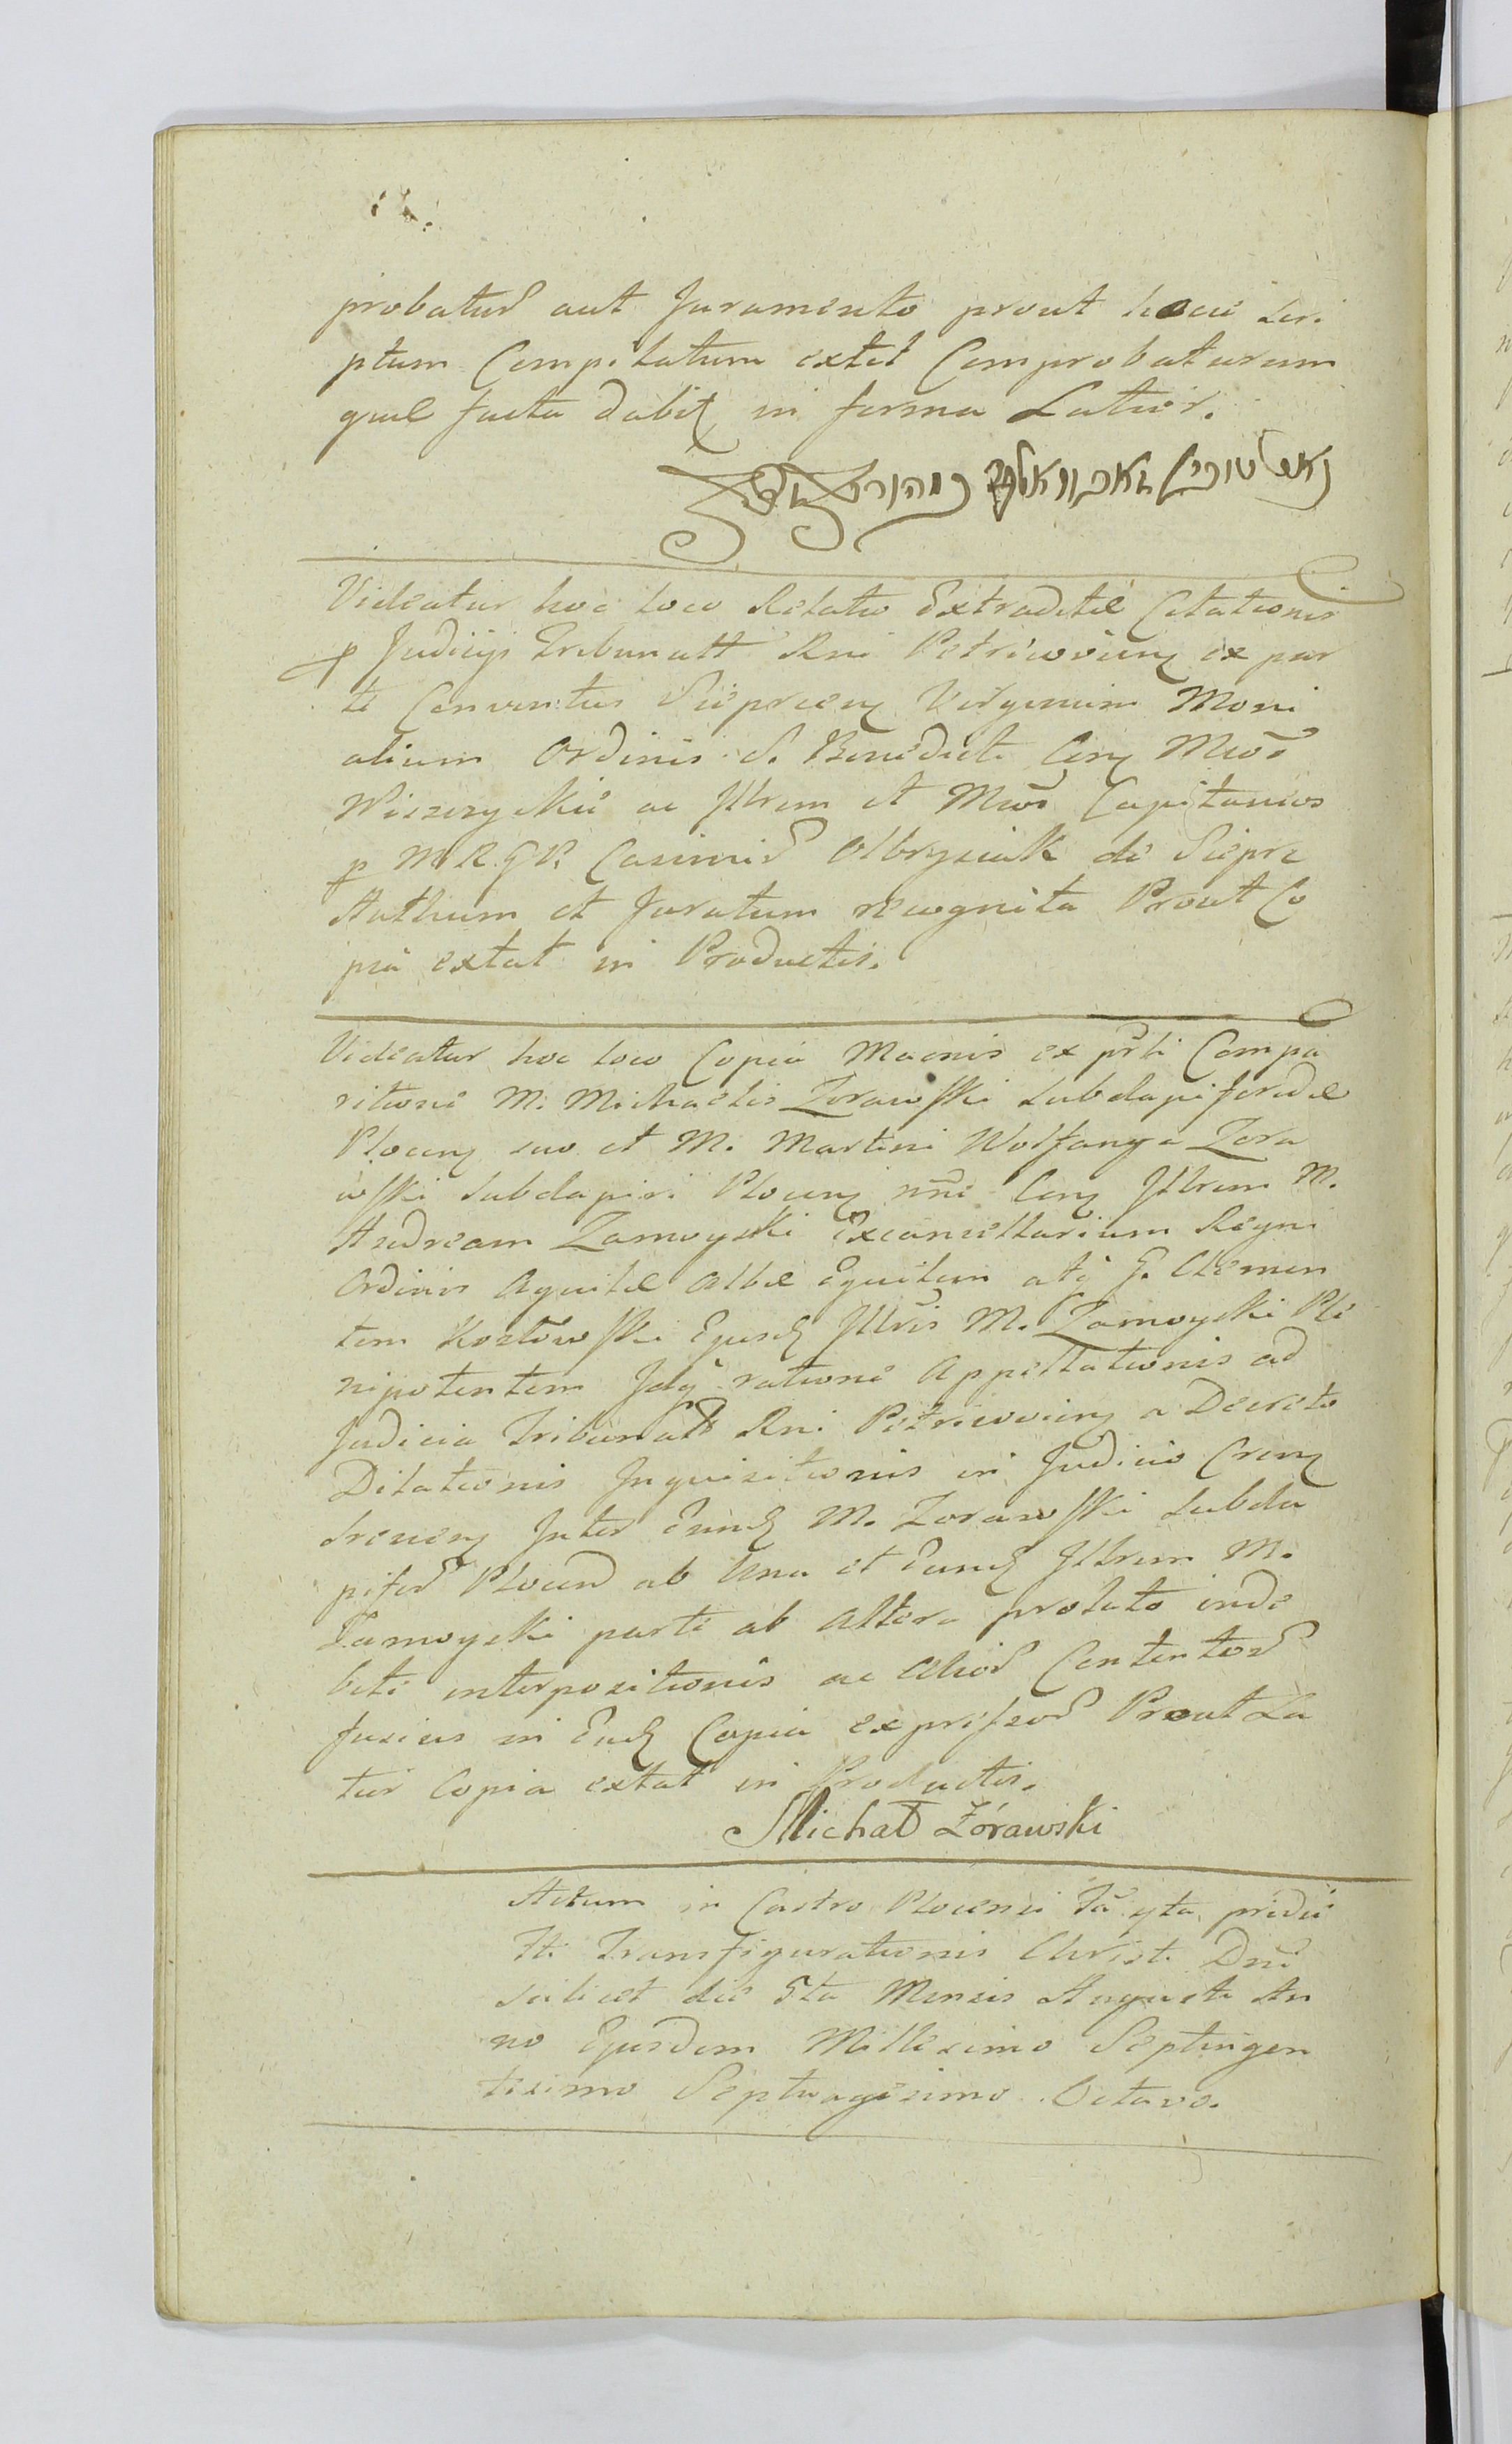 probatur aut Juramento prout hocce Scri
ptum Compilatum extet Comprobaturum
quae facta dabit in forma Latior.
Videatur hoc loco Relatio Extraditae Citationis
p Judicijs Tribunalit Rni Petricovien ex par
te Conventus Sieprcen Virginum Moni
alium Ordinis S. Benedicti Con Mcos
ac Illrem et Mcos Capitaneos
p M R G R Casimir Olbrysiak de Sieprc
Authum et Juratum recognita Prout Co
pia extat in Productis.
Videatur hoc loco Copia Maenis ex prti Compa
ritione M. Michaelis Zorawski Subdapiferidae
Plocen suo et M. Martini Wolfanga Zora
wski Subdapiri Plocen nne Con Illrem M.
Andream Zamoyski Excancellarium Regni
Ordinis Aquilae Albae Equitem atq G. Clemen
tem Kozłowski Ejusd Illris M. Zamoyski Ple
nipotentem Idq ratione Appellationis ad
Judicia Tribunalt Rni Petricovien a Decreto
Dilationis Inquisitionis in Judicio Cren
Srenen Inter Eund M. Zorawski Subda
pifer Plocen ab Una et Eund Illrem M.
Zamoyski parte ab altera prolato inde
bite interpositionis ac alior Contentor
fusius in Ead Copia expressor Prout La
tur Copia extat in Productis.
Michał Zórawski
Actum in Castro Plocensi Fa 4ta pridie
Fti Transfigurationis Christi Dni
scilicet die 5ta Mensis Augusti An
no Ejusdem Millesimo Septingen
tesimo Septuagesimo Octavo.